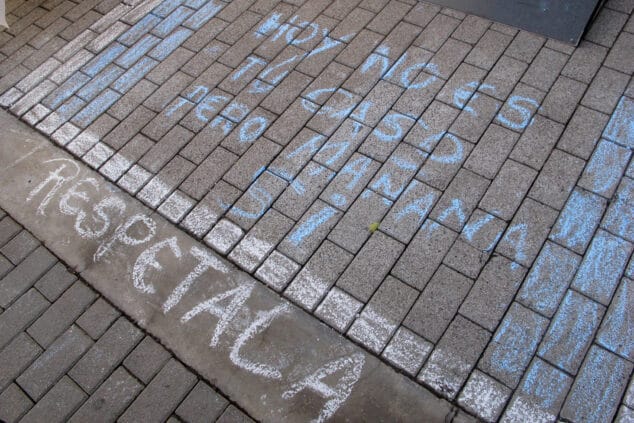 HOY NO ES
TU CASO
PERO MAÑANA
SI
RESPETALA